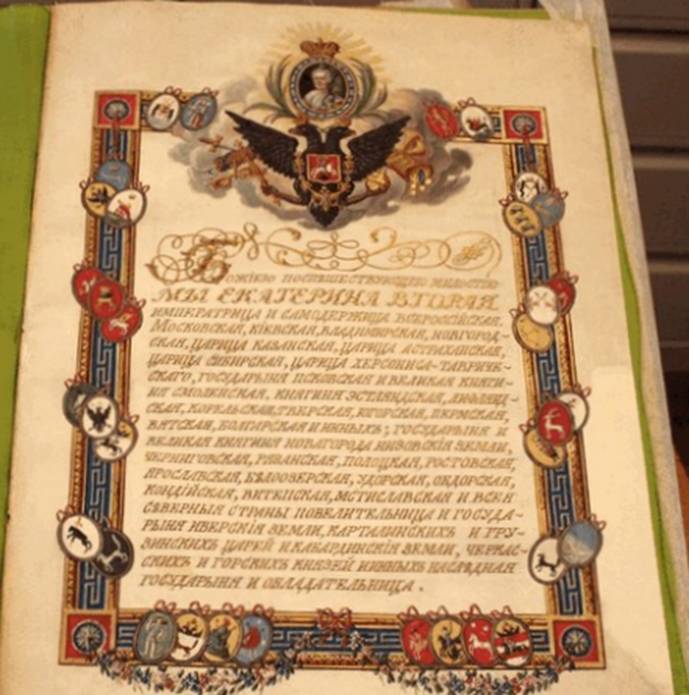 Божіею поспѣшествующею милостію
МЫ ЕКАТЕРИНА ВТОРАЯ,
ИМПЕРАТРИЦА И САМОДЕРЖИЦА ВСЕРОССІЙСКАЯ,
МОСКОВСКАЯ, КІЕВСКАЯ, ВЛАДИМИРСКАЯ, НОВГОРОД-
СКАЯ, ЦАРИЦА КАЗАНСКАЯ, ЦАРИЦА АСТРАХАНСКАЯ,
ЦАРИЦА СИБИРСКАЯ, ЦАРИЦА ХЕРСОНИСА-ТАВРИЧЕ-
СКАГО, ГОСУДАРЫНЯ ПСКОВСКАЯ И ВЕЛИКАЯ КНЯГИ-
НЯ СМОЛЕНСКАЯ, КНЯГИНЯ ЭСТЛЯНДСКАЯ, ЛИФЛЯНД-
СКАЯ, КОРЕЛЬСКАЯ, ТВЕРСКАЯ, ЮГОРСКАЯ, ПЕРМСКАЯ,
ВЯТСКАЯ, БОЛГАРСКАЯ И ИННЫХЪ; ГОСУДАРЫНЯ И
ВЕЛИКАЯ КНЯГИНЯ НОВАГОРОДА НИЗОВСКІЯ ЗЕМЛИ,
ЧЕРНИГОВСКАЯ, РЯЗАНСКАЯ, ПОЛОЦКАЯ, РОСТОВСКАЯ,
ЯРОСЛАВСКАЯ, БѢЛООЗЕРСКАЯ, УДОРСКАЯ, ОБДОРСКАЯ,
КОНДІЙСКАЯ, ВИТЕПСКАЯ, МСТИСЛАВСКАЯ И ВСЕЯ
СѢВЕРНЫЯ СТРАНЫ ПОВЕЛИТЕЛЬНИЦА И ГОСУДА-
РЫНЯ ИВЕРСКІЯ ЗЕМЛИ, КАРТАЛИНСКИХЪ И ГРУ-
ЗИНСКИХЪ ЦАРЕЙ И КАБАРДИНСКІЯ ЗЕМЛИ, ЧЕРКАС-
СКИХЪ И ГОРСКИХЪ КНЯЗЕЙ И ИННЫХЪ НАСЛѢДНАЯ
ГОСУДАРЫНЯ И ОБЛАДАТЕЛЬНИЦА.